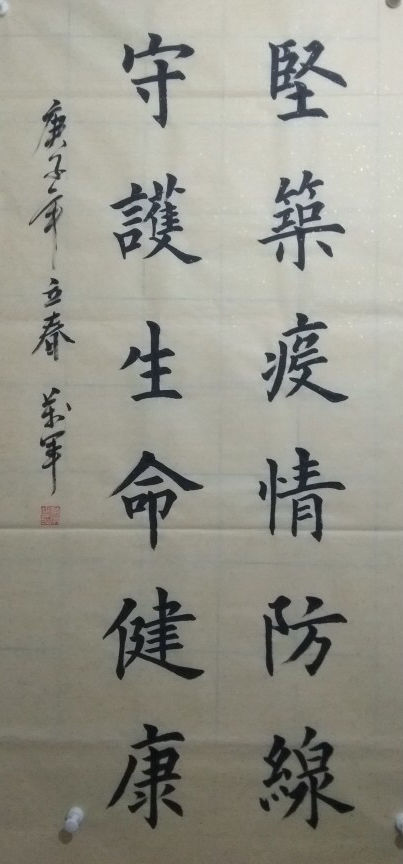 堅築疫情防線
守護生命健康
庚子年立春 萬軍